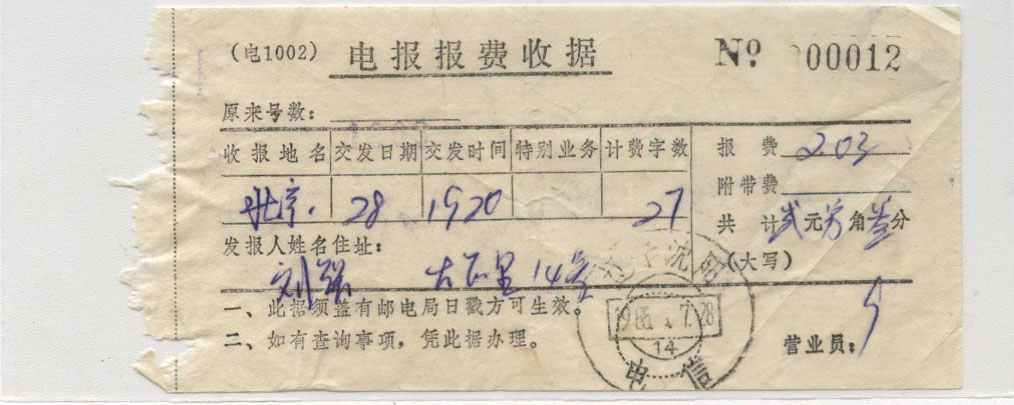 (电1002) 电报报费收据 Nº 000012
原来号数:
收报地名 交发日期 交发时间 特别业务 计费字数 报费 2.03
北京. 28 1920 27 附带费
共计 贰元另角叁分
发报人姓名住址: (大写)
刘强 14号
一、此据须盖有邮电局日戳方可生效。
二、如有查询事项,凭此据办理。 营业员:
辽宁沈阳
1986.7.28
14
电信